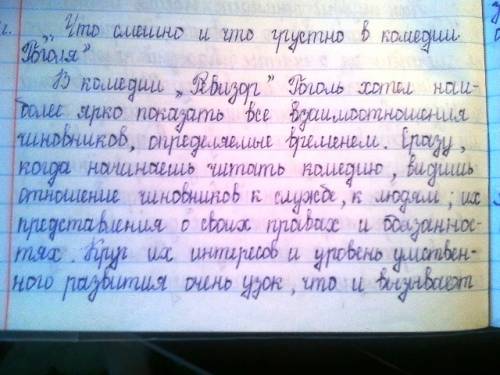 „Что смешно и что грустно в комедии
Гоголя"
В комедии „Ревизор" Гоголь хотел наи-
более ярко показать все взаимоотношения
чиновников, определяемые временем. Сразу,
когда начинаешь читать комедию, видишь
отношение чиновников к службе, к людям; их
представления о своих правах и обязаннос-
тях. Круг их интересов и уровень умствен-
ного развития очень узок, что и вызывает